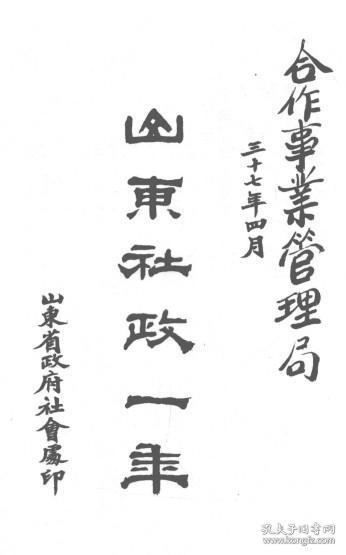 合作事業管理局
三十七年四月
山東社政一年
山東省政府社會處印
孔夫子旧书网